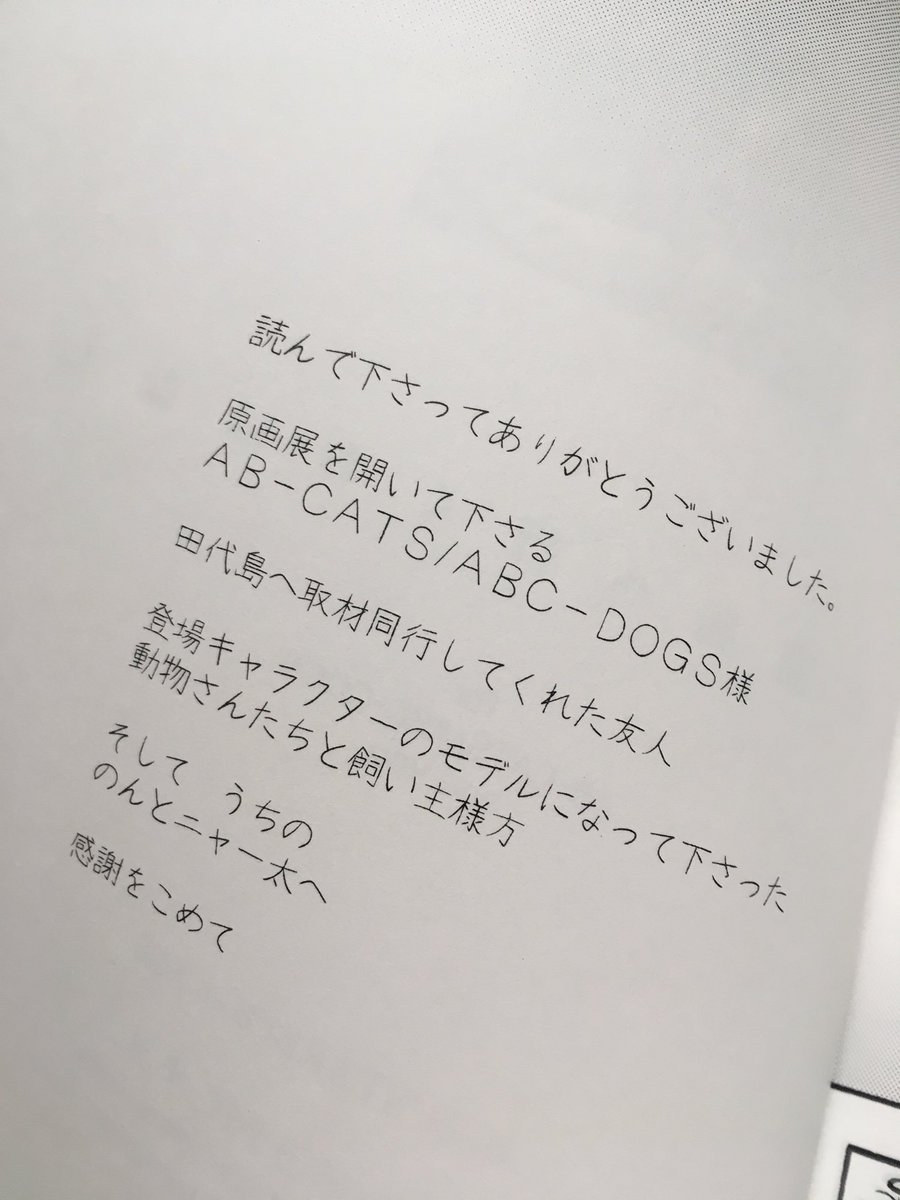 読んで下さってありがとうございました。
原画展を開いて下さる
AB-CATS/ABC-DOGS様
田代島へ取材同行してくれた友人
登場キャラクターのモデルになって下さった
動物さんたちと飼い主様方
そして　うちの
のんとニャー太へ
感謝をこめて